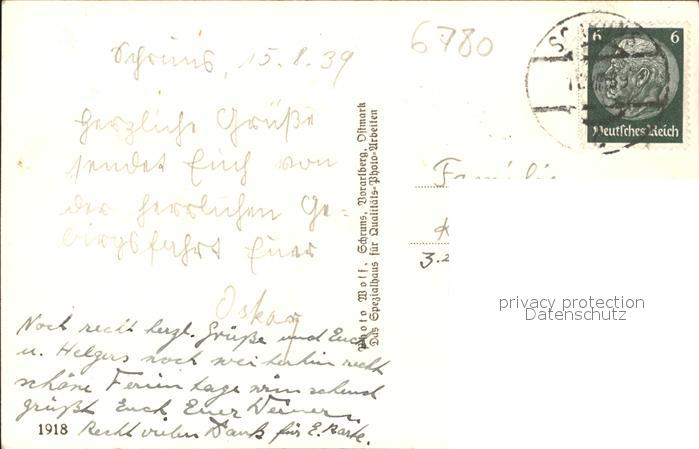 6780
Schruns, 15.8.39
Herzliche Grüße
sendet Euch von
der herrlichen Ge-
birgsfahrt Euer
Oskar
Noch recht herzl. Grüße und Euch
u. Helgers noch weiterhin recht
schöne Ferientage wünschend
grüßt Euch Euer Werner.
1918 Recht vielen Dank für E. Karte.
Photo Wolf, Schruns, Vorarlberg, Ostmark
Das Spezialhaus für Qualitäts-Photo-Arbeiten
6 6
Deutsches Reich
Familie
3.2
privacy protection
Datenschutz